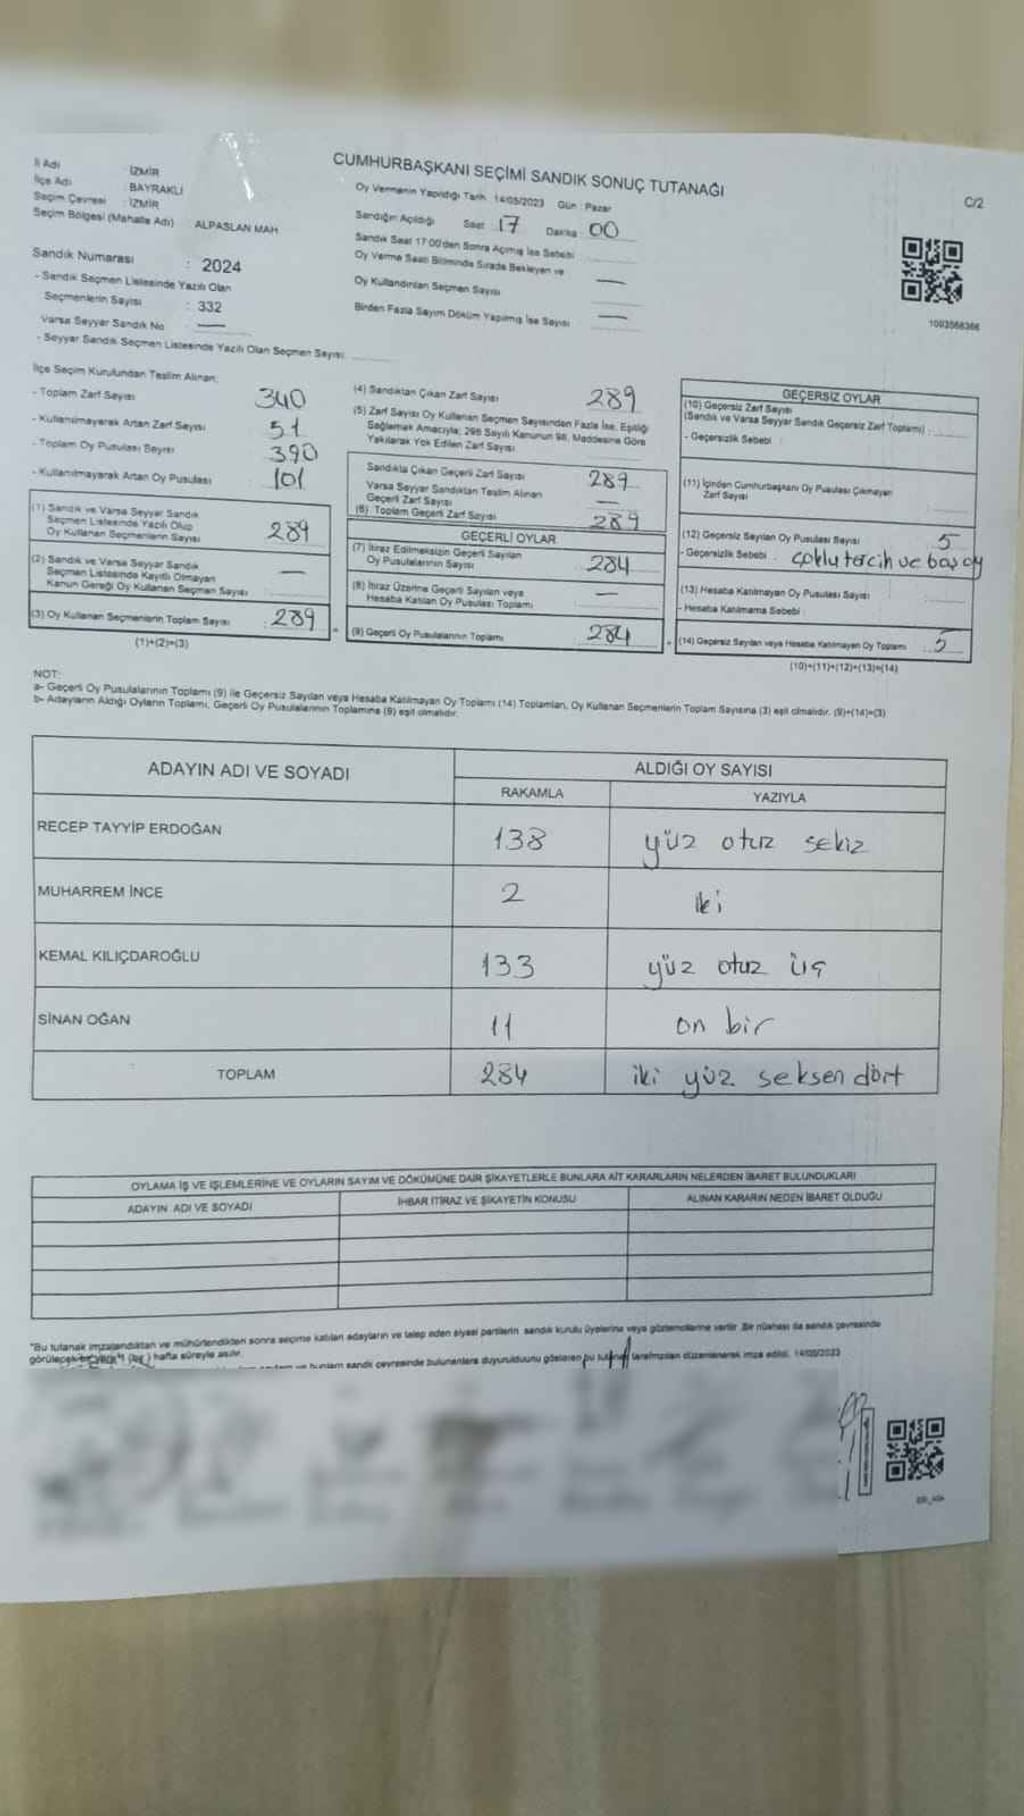 CUMHURBAŞKANI SEÇİMİ SANDIK SONUÇ TUTANAĞI
C/2
İl Adı İZMİR
İlçe Adı : BAYRAKLI
Seçim Çevresi : İZMİR
Seçim Bölgesi (Mahalle Adı) : ALPASLAN MAH
Sandık Numarası : 2024
- Sandık Seçmen Listesinde Yazılı Olan
Seçmenlerin Sayısı : 332
Varsa Seyyar Sandık No : —
- Seyyar Sandık Seçmen Listesinde Yazılı Olan Seçmen Sayısı:
Oy Vermenin Yapıldığı Tarih 14/05/2023 Gün : Pazar
Sandığın Açıldığı Saat 17 Dakika 00
Sandık Saat 17:00'den Sonra Açılmış İse Sebebi
Oy Verme Saati Bitiminde Sırada Bekleyen ve
Oy Kullandırılan Seçmen Sayısı —
Birden Fazla Sayım Döküm Yapılmış İse Sayısı —
1093568366
İlçe Seçim Kurulundan Teslim Alınan;
- Toplam Zarf Sayısı 340
- Kullanılmayarak Artan Zarf Sayısı 51
- Toplam Oy Pusulası Sayısı 390
- Kullanılmayarak Artan Oy Pusulası 101
(1) Sandık ve Varsa Seyyar Sandık
Seçmen Listesinde Yazılı Olup
Oy Kullanan Seçmenlerin Sayısı 289
(2) Sandık ve Varsa Seyyar Sandık
Seçmen Listesinde Kayıtlı Olmayan
Kanun Gereği Oy Kullanan Seçmen Sayısı —
(3) Oy Kullanan Seçmenlerin Toplam Sayısı 289
(1)+(2)=(3)
(4) Sandıktan Çıkan Zarf Sayısı 289
(5) Zarf Sayısı Oy Kullanan Seçmen Sayısından Fazla İse, Eşitliği
Sağlamak Amacıyla; 298 Sayılı Kanunun 98. Maddesine Göre
Yakılarak Yok Edilen Zarf Sayısı
Sandıkta Çıkan Geçerli Zarf Sayısı 289
Varsa Seyyar Sandıktan Teslim Alınan
Geçerli Zarf Sayısı —
(6) Toplam Geçerli Zarf Sayısı 289
GEÇERLİ OYLAR
(7) İtiraz Edilmeksizin Geçerli Sayılan
Oy Pusulalarının Sayısı 284
(8) İtiraz Üzerine Geçerli Sayılan veya
Hesaba Katılan Oy Pusulası Toplamı —
(9) Geçerli Oy Pusulalarının Toplamı 284
GEÇERSİZ OYLAR
(10) Geçersiz Zarf Sayısı
(Sandık ve Varsa Seyyar Sandık Geçersiz Zarf Toplamı) :
- Geçersizlik Sebebi :
(11) İçinden Cumhurbaşkanı Oy Pusulası Çıkmayan
Zarf Sayısı
(12) Geçersiz Sayılan Oy Pusulası Sayısı 5
- Geçersizlik Sebebi çoklu tercih ve boş oy
(13) Hesaba Katılmayan Oy Pusulası Sayısı
- Hesaba Katılmama Sebebi :
(14) Geçersiz Sayılan veya Hesaba Katılmayan Oy Toplamı 5
(10)+(11)+(12)+(13)=(14)
NOT:
a- Geçerli Oy Pusulalarının Toplamı (9) ile Geçersiz Sayılan veya Hesaba Katılmayan Oy Toplamı (14) Toplamları, Oy Kullanan Seçmenlerin Toplam Sayısına (3) eşit olmalıdır. (9)+(14)=(3)
b- Adayların Aldığı Oyların Toplamı, Geçerli Oy Pusulalarının Toplamına (9) eşit olmalıdır.
ADAYIN ADI VE SOYADI ALDIĞI OY SAYISI
RAKAMLA YAZIYLA
RECEP TAYYİP ERDOĞAN 138 yüz otuz sekiz
MUHARREM İNCE 2 iki
KEMAL KILIÇDAROĞLU 133 yüz otuz üç
SİNAN OĞAN 11 on bir
TOPLAM 284 iki yüz seksen dört
OYLAMA İŞ VE İŞLEMLERİNE VE OYLARIN SAYIM VE DÖKÜMÜNE DAİR ŞİKAYETLERLE BUNLARA AİT KARARLARIN NELERDEN İBARET BULUNDUKLARI
ADAYIN ADI VE SOYADI İHBAR İTİRAZ VE ŞİKAYETİN KONUSU ALINAN KARARIN NEDEN İBARET OLDUĞU
"Bu tutanak imzalandıktan ve mühürlendikten sonra seçime katılan adayların ve talep eden siyasi partilerin sandık kurulu üyelerine veya gözlemcilerine verilir. Bir nüshası da sandık çevresinde
görülecek bir yere 1 (bir) hafta süreyle asılır.
ve bunların sandık çevresinde bulunanlara duyurulduğunu gösteren bu tutanak tarafımızdan düzenlenerek imza edildi. 14/05/2023